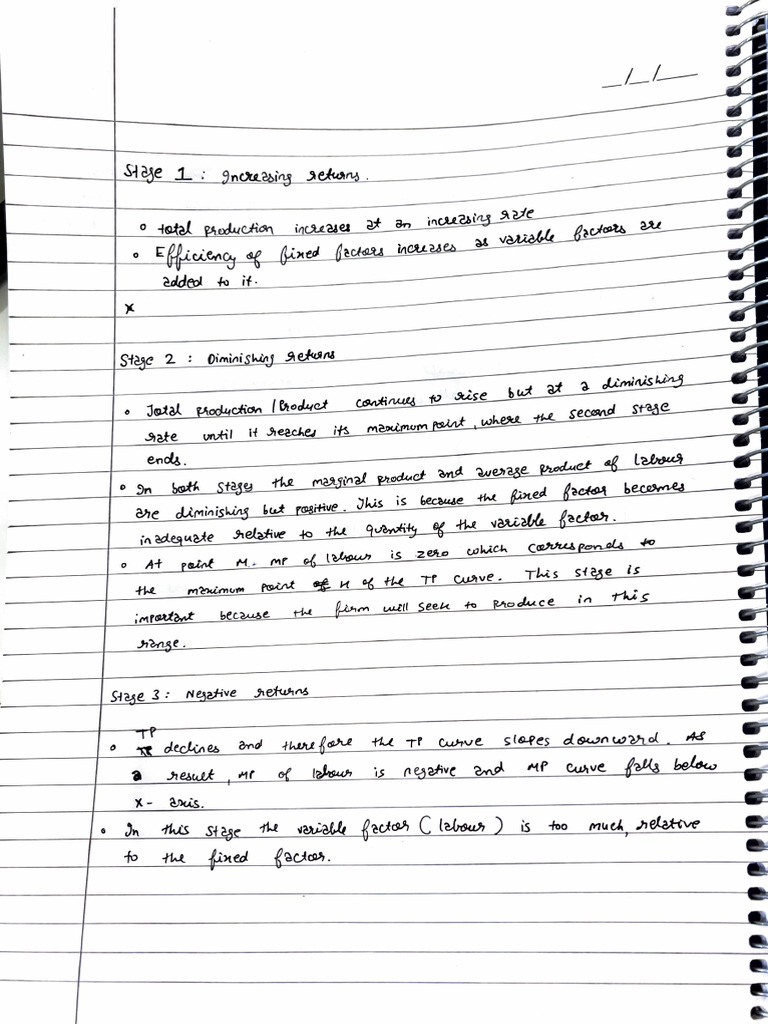 _/_/__
Stage 1 : Increasing returns.
o total production increases at an increasing rate
o Efficiency of fixed factors increases as variable factors are
added to it.
x
Stage 2 : Diminishing returns
o Total production / Product continues to rise but at a diminishing
rate until it reaches its maximum point, where the second stage
ends.
o In both stages the marginal product and average product of labour
are diminishing but positive. This is because the fixed factor becomes
inadequate relative to the quantity of the variable factor.
o At point M. MP of labour is zero which corresponds to
the maximum point H of the TP curve. This stage is
important because the firm will seek to produce in this
range.
Stage 3 : Negative returns
TP
o declines and therefore the TP curve slopes downward. As
a result, MP of labour is negative and MP curve falls below
x - axis.
o In this stage the variable factor ( labour ) is too much, relative
to the fixed factor.